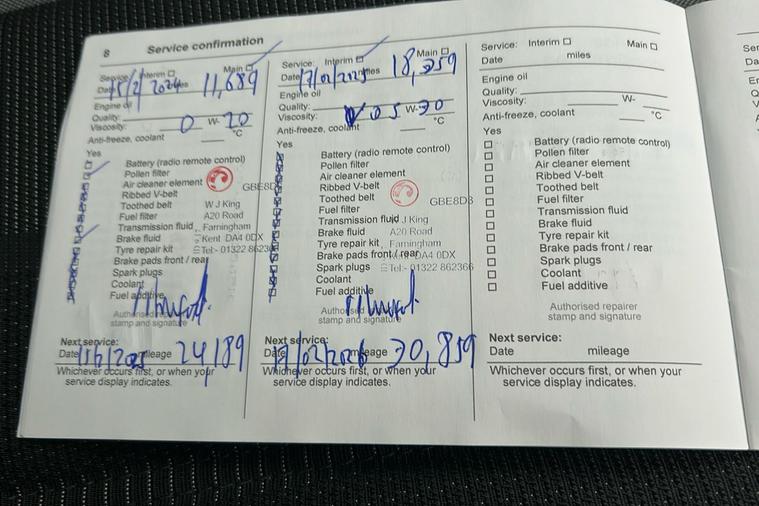 8 Service confirmation
Service: Interim ☐ Main ☐
Date 15/2/2024 miles 11,689
Engine oil
Quality:
Viscosity: 0 W- 20
Anti-freeze, coolant °C
Yes
Battery (radio remote control)
Pollen filter
Air cleaner element
Ribbed V-belt GBE8D3
Toothed belt W J King
Fuel filter A20 Road
Transmission fluid Farningham
Brake fluid Kent DA4 0DX
Tyre repair kit Tel:- 01322 862366
Brake pads front / rear
Spark plugs
Coolant
Fuel additive
Authorised repairer
stamp and signature
Next service:
Date mileage 24,189
Whichever occurs first, or when your
service display indicates.
Service: Interim ☐ Main ☐
Date 17/02/2025 miles 18,359
Engine oil
Quality:
Viscosity: 05 W-30
Anti-freeze, coolant °C
Yes
Battery (radio remote control)
Pollen filter
Air cleaner element
Ribbed V-belt
Toothed belt GBE8D3
Fuel filter
Transmission fluid J King
Brake fluid A20 Road
Tyre repair kit Farningham
Brake pads front / rear DA4 0DX
Spark plugs Tel:- 01322 862366
Coolant
Fuel additive
Authorised
stamp and signature
Next service:
Date 17/02/2026 mileage 30,859
Whichever occurs first, or when your
service display indicates.
Service: Interim ☐ Main ☐
Date miles
Engine oil
Quality:
Viscosity: W-
Anti-freeze, coolant °C
Yes
☐ Battery (radio remote control)
☐ Pollen filter
☐ Air cleaner element
☐ Ribbed V-belt
☐ Toothed belt
☐ Fuel filter
☐ Transmission fluid
☐ Brake fluid
☐ Tyre repair kit
☐ Brake pads front / rear
☐ Spark plugs
☐ Coolant
☐ Fuel additive
Authorised repairer
stamp and signature
Next service:
Date mileage
Whichever occurs first, or when your
service display indicates.